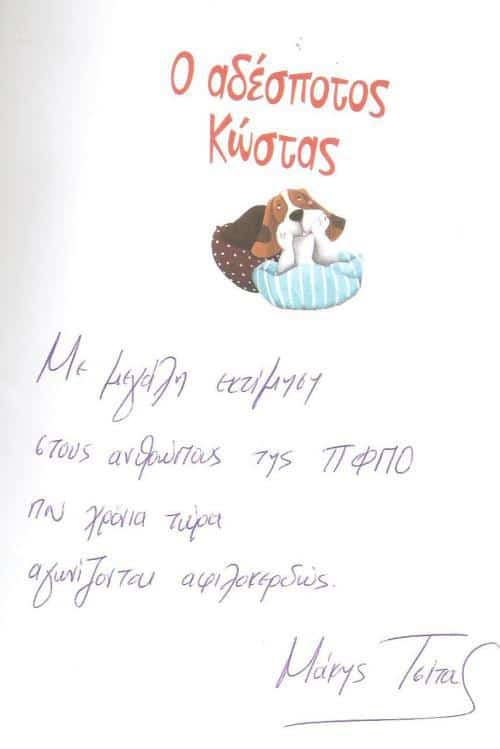 Ο αδέσποτος
Κώστας
Με μεγάλη εκτίμηση
στους ανθρώπους της ΠΦΠΟ
που χρόνια τώρα
αγωνίζονται αφιλοκερδώς.
Μάκης Τσίτας